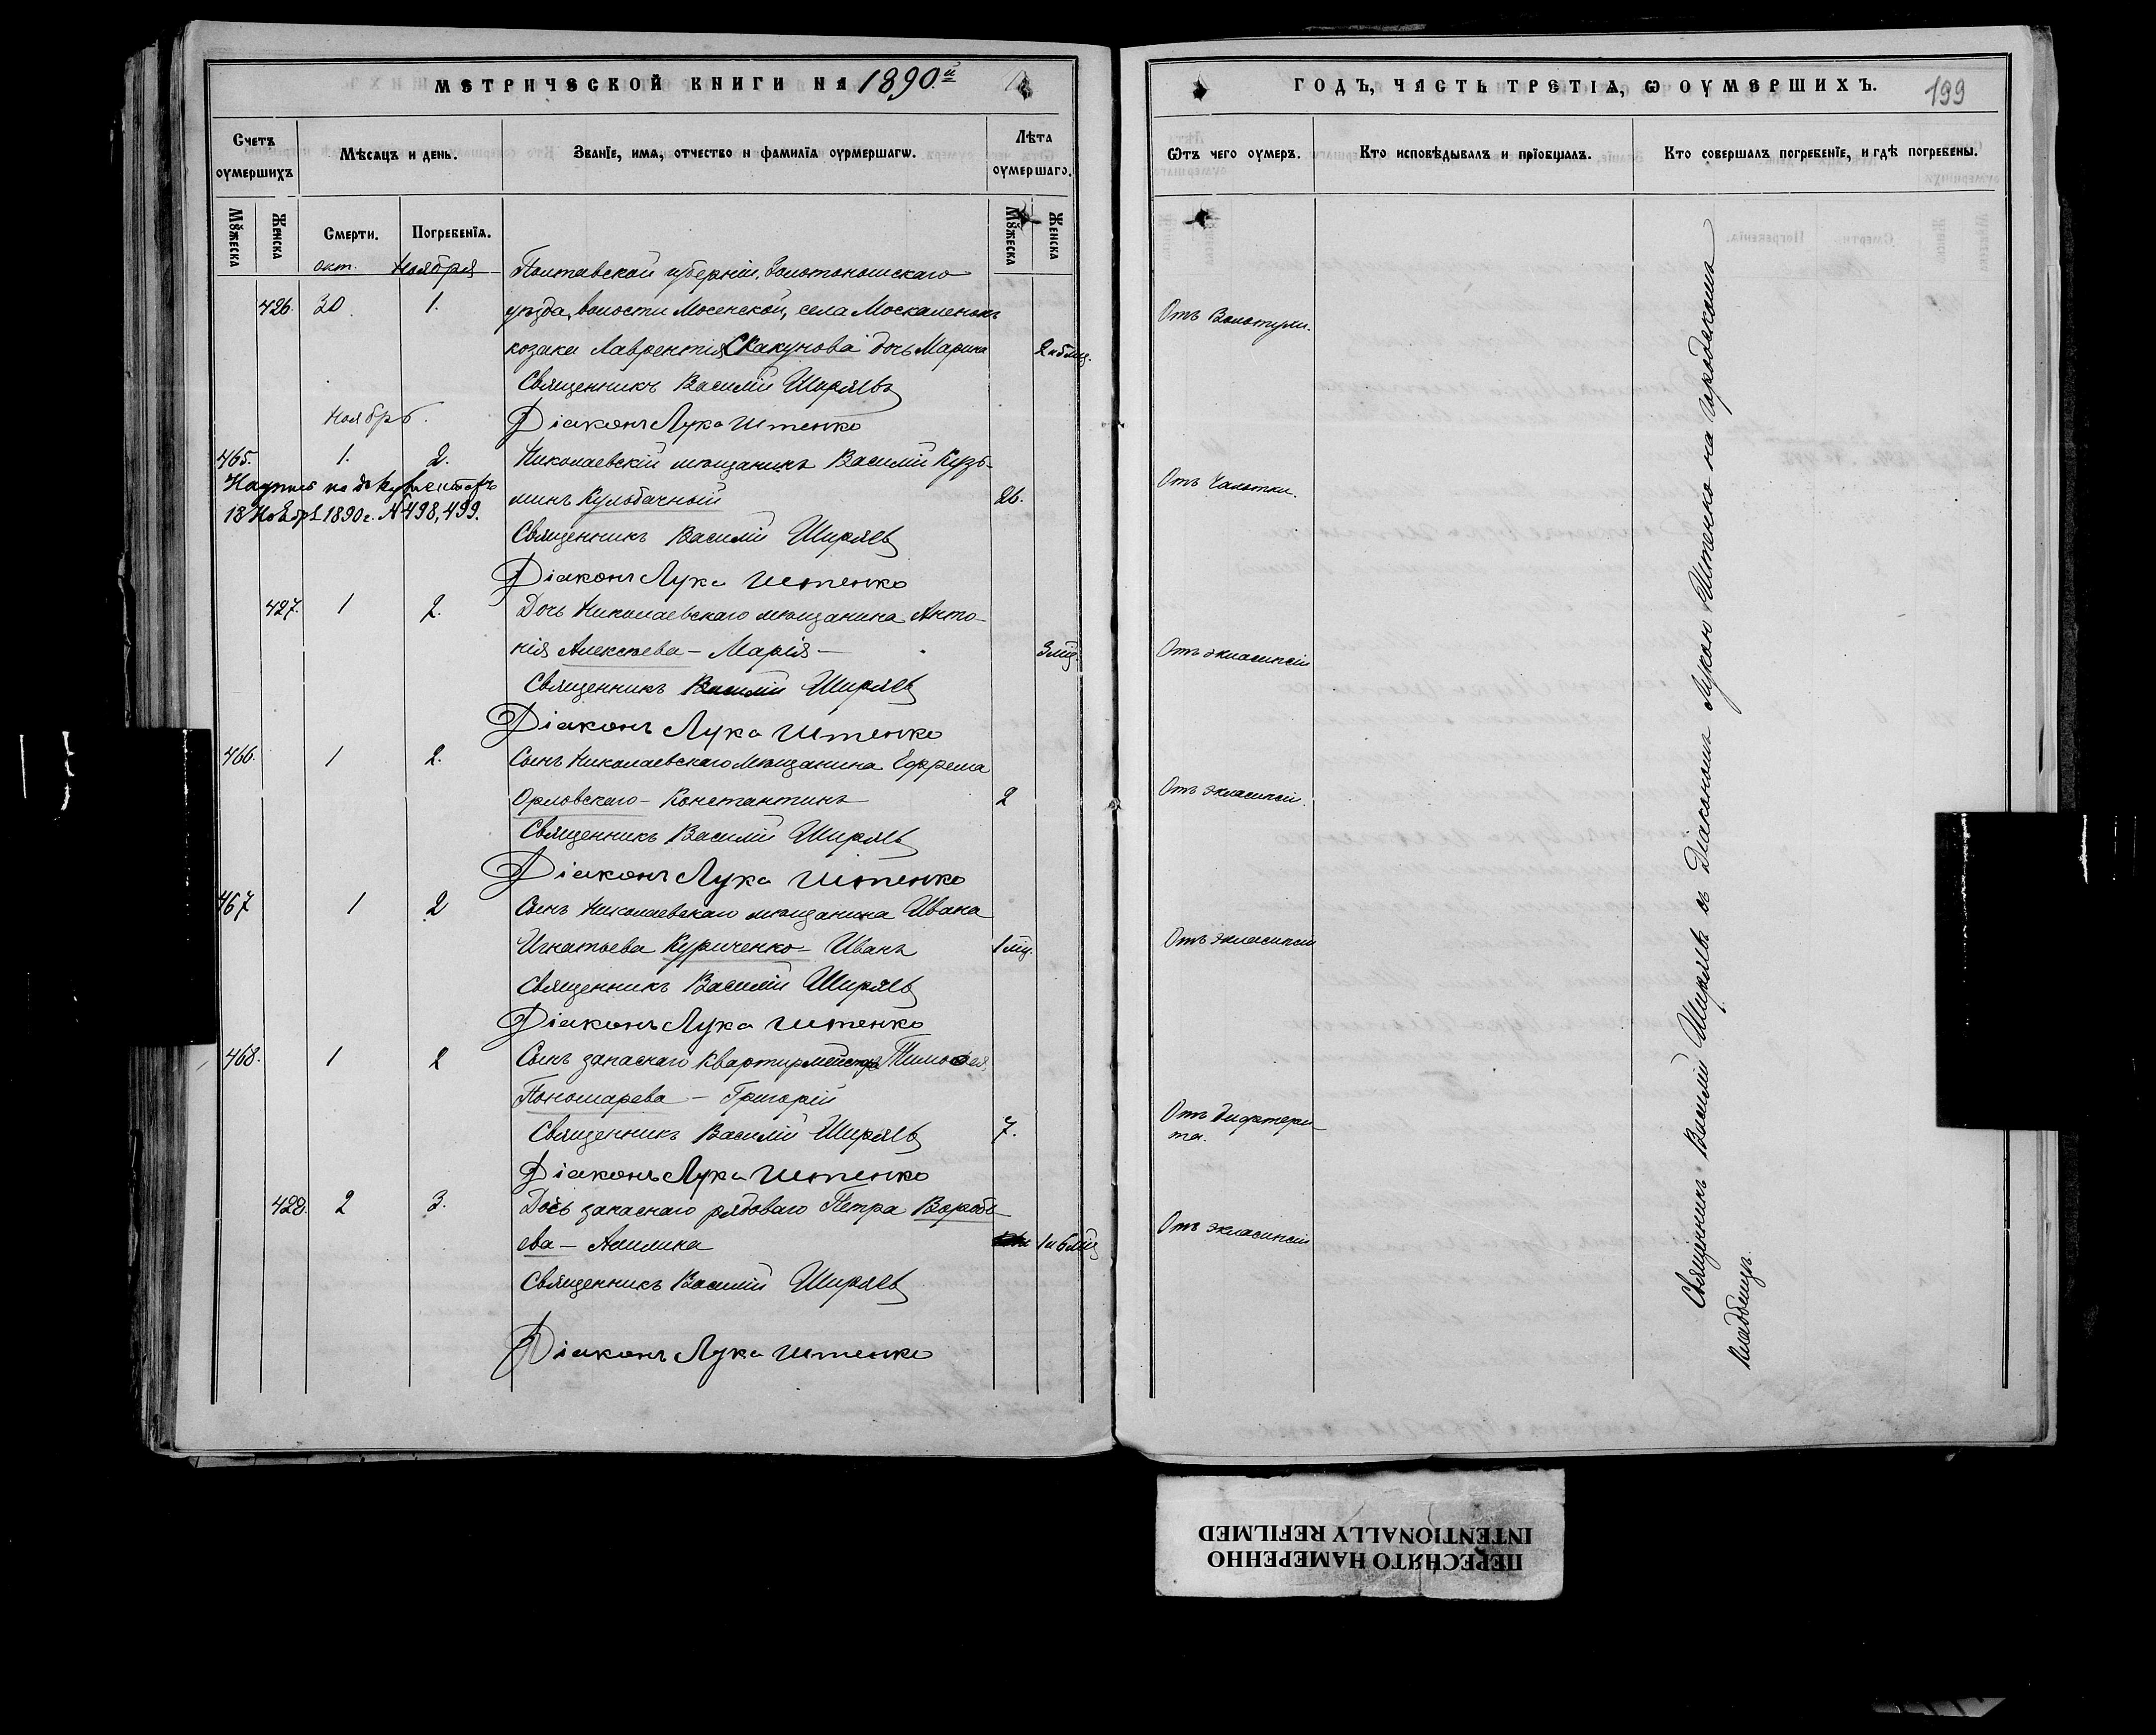 МЕТРИЧЕСКОЙ КНИГИ НА 1890.й
Счетъ оумершихъ
Мѣсяцъ и день.
Званіе, имя, отчество и фамилія оурмершагѡ.
Лѣта оумершаго.
Мꙋжеска
Женска
Смерти.
Погребенія.
Мꙋжеска
Женска
окт. Ноября Полтавской губерніи, Золотоношскаго
426. 30. 1. уѣзда, волости Мосенской, села Москаленокъ
козака Лаврентія Скакунова дочь Марина
Священникъ Василій Ширяевъ
Ноябрь. Діаконъ Лука Иотенко
465. 1. 2. Николаевскій мѣщанинъ Василій Кузь-
минъ Кульбачный 26.
18 Ноябр 1890 г. № 498, 499.
Священникъ Василій Ширяевъ
Діаконъ Лука Иотенко
427. 1 2. Дочь Николаевскаго мѣщанина Анто-
нія Алексѣева – Марія – 3 мц.
Священникъ Василій Ширяевъ
Діаконъ Лука Иотенко
466. 1 2. Сынъ Николаевскаго мѣщанина Ефрема
Орловскаго – Константинъ 2
Священникъ Василій Ширяевъ
Діаконъ Лука Иотенко
467 1 2 Сынъ Николаевскаго мѣщанина Ивана
Игнатьева Куриченко – Иванъ 1 мц.
Священникъ Василій Ширяевъ
Діаконъ Лука Иотенко
468. 1 2 Сынъ запаснаго квартирмейстра Тимоѳея
Пономарева – Григорій
Священникъ Василій Ширяевъ 7.
Діаконъ Лука Иотенко
428. 2 3. Дочь запаснаго рядоваго Петра Воробь-
ева – Акилина 1 и 6 мц
Священникъ Василій Ширяевъ
Діаконъ Лука Иотенко
ГОДЪ, ЧАСТЬ ТРЕТІЯ, Ѡ ОУМЕРШИХЪ.
199
Ѿтъ чего оумеръ.
Кто исповѣдывалъ и пріобщалъ.
Кто совершалъ погребеніе, и гдѣ погребены.
Отъ Золотухи.
Отъ Чахотки.
Отъ эклампсіи
Отъ эклампсіи.
Отъ эклампсіи
Отъ дифтери-
та.
Отъ эклампсіи
Священникъ Василій Ширяевъ съ Діакономъ Лукою Иотенко на городскомъ
Кладбищѣ.
ПЕРЕСНЯТО НАМЕРЕННО
INTENTIONALLY REFILMED